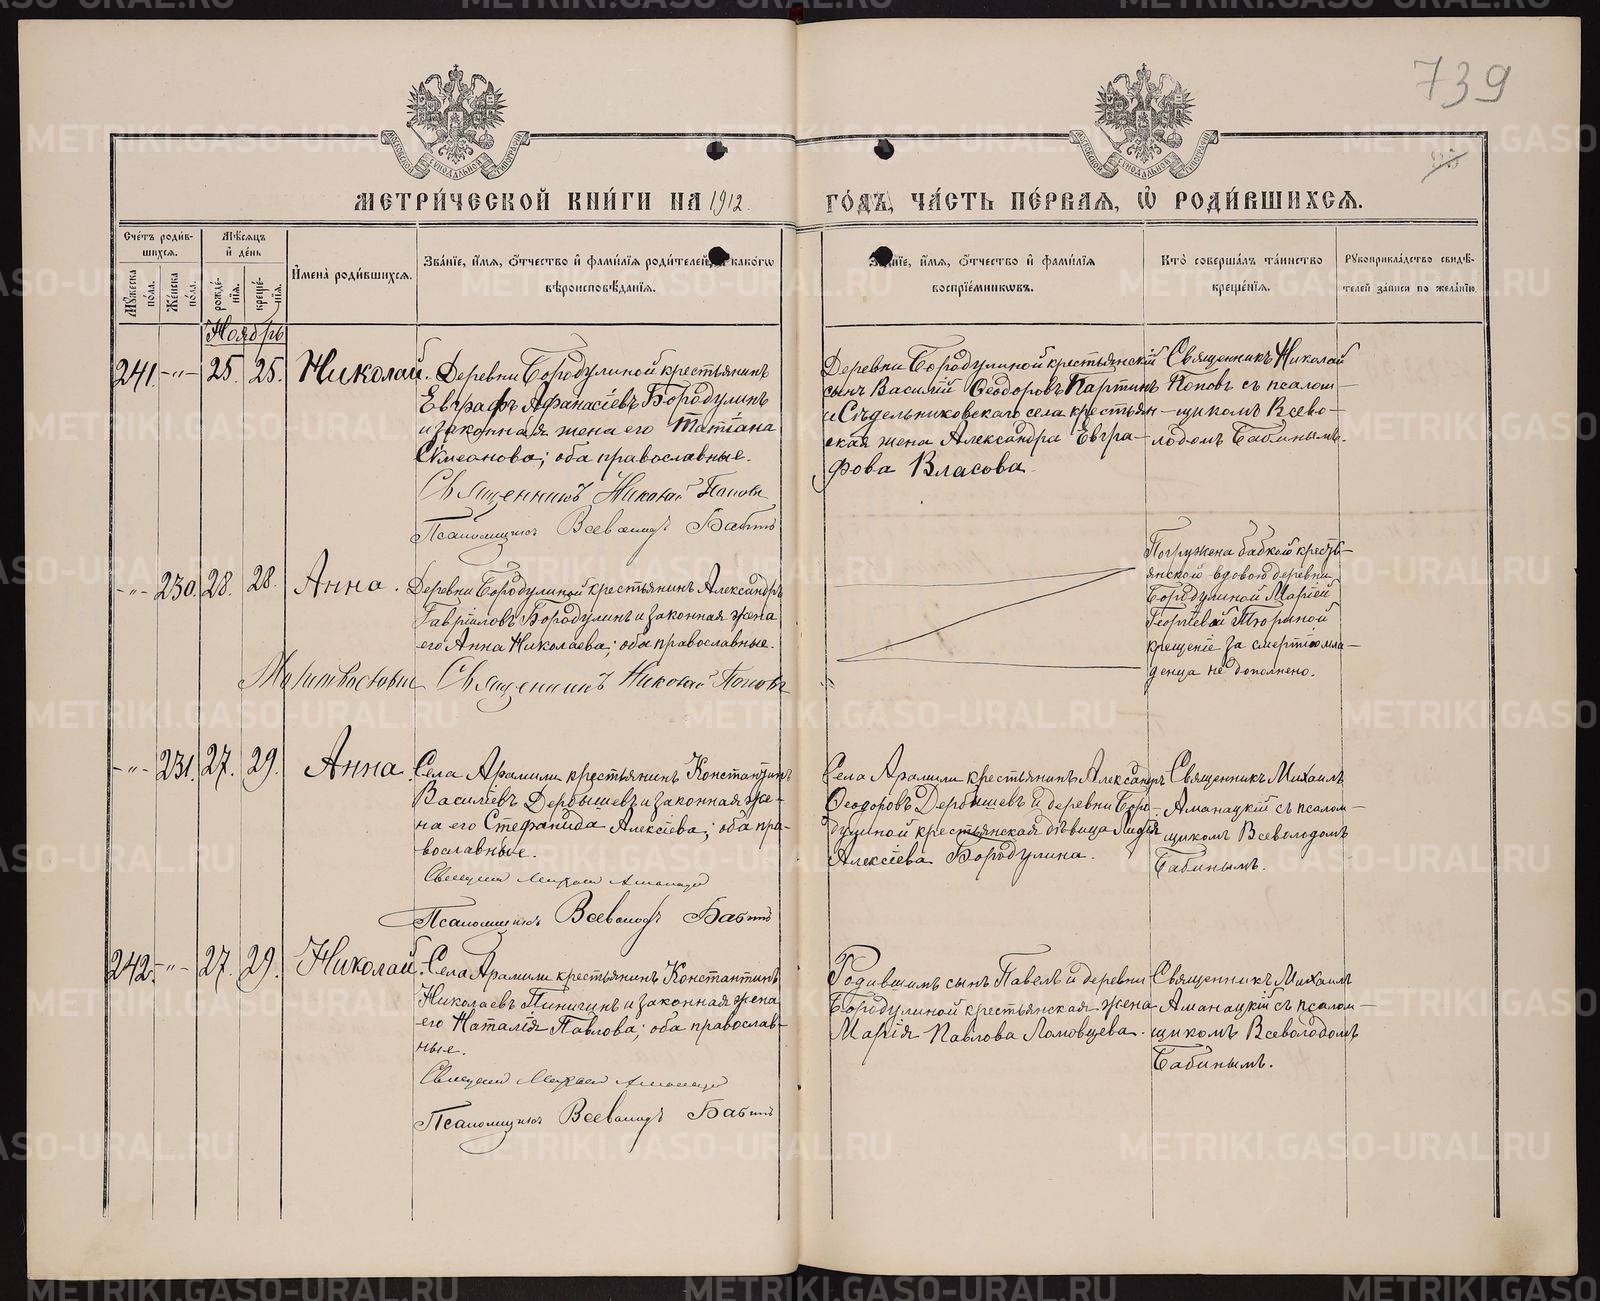 739
МЕТРИ́ЧЕСКОЙ КНИ́ГИ НА 1912
ГО́ДЪ, ЧА́СТЬ ПЕ́РВАЯ, Ѡ҆ РОДИ́ВШИХСЯ.
Сче́тъ роди́в-
шихся.
Мѣ́сяцъ
и҆ де́нь
Мꙋ́жеска по́ла.
Же́нска по́ла.
рожде́-
нїѧ.
креще́-
нїѧ.
И҆мена̀ роди́вшихся.
Зва́нїе, и҆́мя, ѻ҆́тчество и҆ фами́лїя роди́телей, и҆ како́гѡ
вѣроисповѣ́данїѧ.
и҆́мя, ѻ҆́тчество и҆ фами́лїя
воспрїе́мникѡвъ.
Кто̀ соверша́лъ та́инство
креще́нїѧ.
Рꙋкоприкла́дство свидѣ́-
телей за́писи по жела́нїю.
Ноябрь
241. -"- 25. 25. Николай.
Деревни Бородулиной крестьянинъ
Евграфъ Афанасіевъ Бородулинъ
и законная жена его Татіана
Симеонова; оба православные.
Священникъ Николай Поповъ
Псаломщикъ Всеволодъ Бабинъ
Деревни Бородулиной крестьянскій
сынъ Василій Ѳеодоровъ Партинъ
и Сѣдельниковскаго села крестьян-
ская жена Александра Евгра-
фова Власова.
Священникъ Николай
Поповъ съ псалом-
щикомъ Всево-
лодомъ Бабинымъ.
-"- 230. 28. 28. Анна.
Деревни Бородулиной крестьянинъ Александръ
Гавріиловъ Бородулинъ и законная жена
его Анна Николаева; оба православные.
Молитвословилъ Священникъ Николай Поповъ
Погружена бабкой кресть-
янской вдовою деревни
Бородулиной Маріей
Георгіевой
крещеніе за смертію мла-
денца не дополнено.
-"- 231. 27. 29. Анна.
Села Арамили крестьянинъ Константинъ
Василіевъ Дербышевъ и законная же-
на его Стефанида Алексіева; оба пра-
вославные.
Священникъ Михаил Аманацкій
Псаломщикъ Всеволодъ Бабинъ
Села Арамили крестьянинъ Александръ
Ѳеодоровъ Дербышевъ и деревни Боро-
дулиной крестьянская дѣвица Лидія
Алексіева Бородулина.
Священникъ Михаилъ
Аманацкій съ псалом-
щикомъ Всеволодомъ
Бабинымъ.
242. -"- 27. 29. Николай.
Села Арамили крестьянинъ Константинъ
Николаевъ Пинигинъ и законная жена
его Наталія Павлова; оба православ-
ные.
Священникъ Михаил Аманацкій
Псаломщикъ Всеволодъ Бабинъ
Родившимъ сынъ Павелъ и деревни
Бородулиной крестьянская жена
Марія Павлова Ломовцева.
Священникъ Михаилъ
Аманацкій съ псалом-
щикомъ Всеволодомъ
Бабинымъ.
METRIKI.GASO-URAL.RU